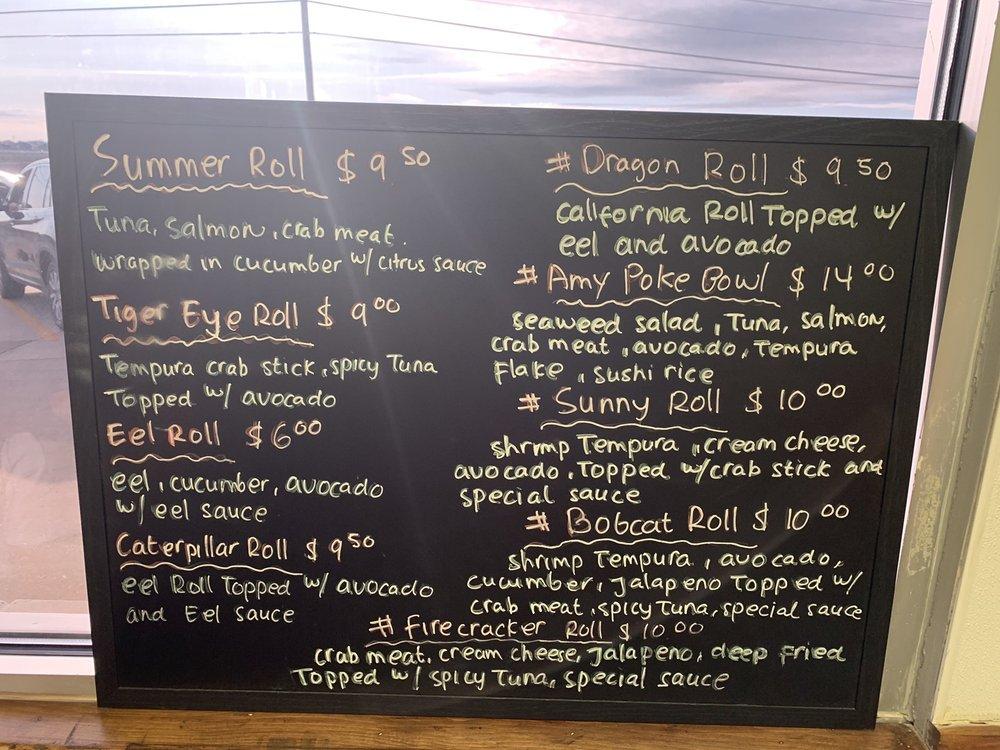 Summer Roll $ 9 50
Tuna, Salmon, crab meat.
wrapped in cucumber w/ citrus sauce
Tiger Eye Roll $ 9 00
Tempura crab stick, spicy Tuna
Topped w/ avocado
Eel Roll $ 6 00
eel, cucumber, avocado
w/ eel sauce
Caterpillar Roll $ 9 50
eel Roll Topped w/ avocado
and Eel sauce
# Dragon Roll $ 9 50
california Roll Topped w/
eel and avocado
# Amy Poke Bowl $ 14 00
seaweed salad, Tuna, salmon,
crab meat, avocado, Tempura
Flake, sushi rice
# Sunny Roll $ 10 00
shrimp Tempura, cream cheese,
avocado, Topped w/ crab stick and
special sauce
# Bobcat Roll $ 10 00
shrimp Tempura, avocado,
cucumber, jalapeno Topped w/
crab meat, spicy Tuna, special sauce
# firecracker Roll $ 10 00
crab meat, cream cheese, jalapeno, deep fried
Topped w/ spicy Tuna, special sauce